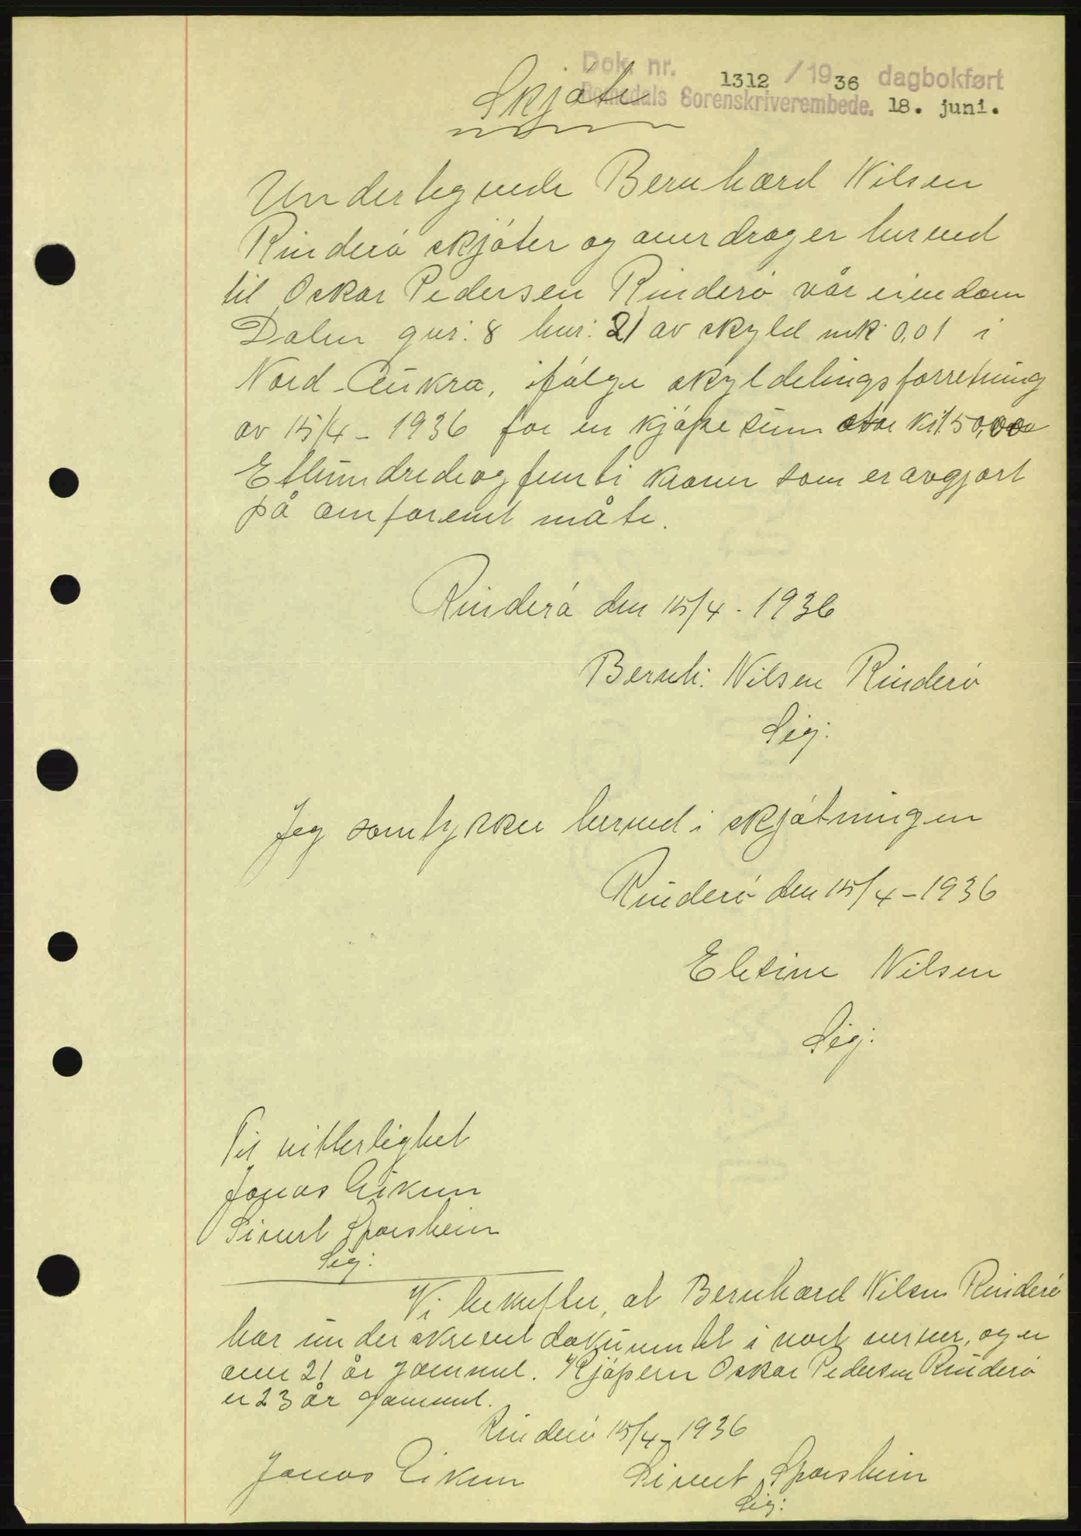 Dok. nr. 1312 / 1936 dagbokført
Romsdals Sorenskriverembede. 18. juni.
Skjøte
Undertegnede Bernhard Nilsen
Rinderø skjøter og overdrager herved
til Oskar Pedersen Rinderø vår eiendom
Dalen gnr: 8 bnr: 21 av skyld mk 0,01 i
Nord-Aukra, ifølge skyldelingsforretning
av 15/4 - 1936 for en kjøpesum stor kr 150,00
Etthundredeogfemti kroner som er avgjort
på omforenet måte.
Rinderø den 15/4 - 1936
Bernh. Nilsen Rinderø
Sig:
Jeg samtykker herved i skjøtningen
Rinderø den 15/4 - 1936
Eletine Nilsen
Sig:
Til vitterlighet
Jonas Eikum
Sivert Sporsheim
Sig:
Vi bekrefter, at Bernhard Nilsen Rinderø
har underskrevet dokumentet i vort nerver, og er
over 21 år gammel. Kjøperen Oskar Pedersen Rinderø
er 23 år gammel.
Rinderø 15/4 - 1936
Jonas Eikum Sivert Sporsheim
Sig: